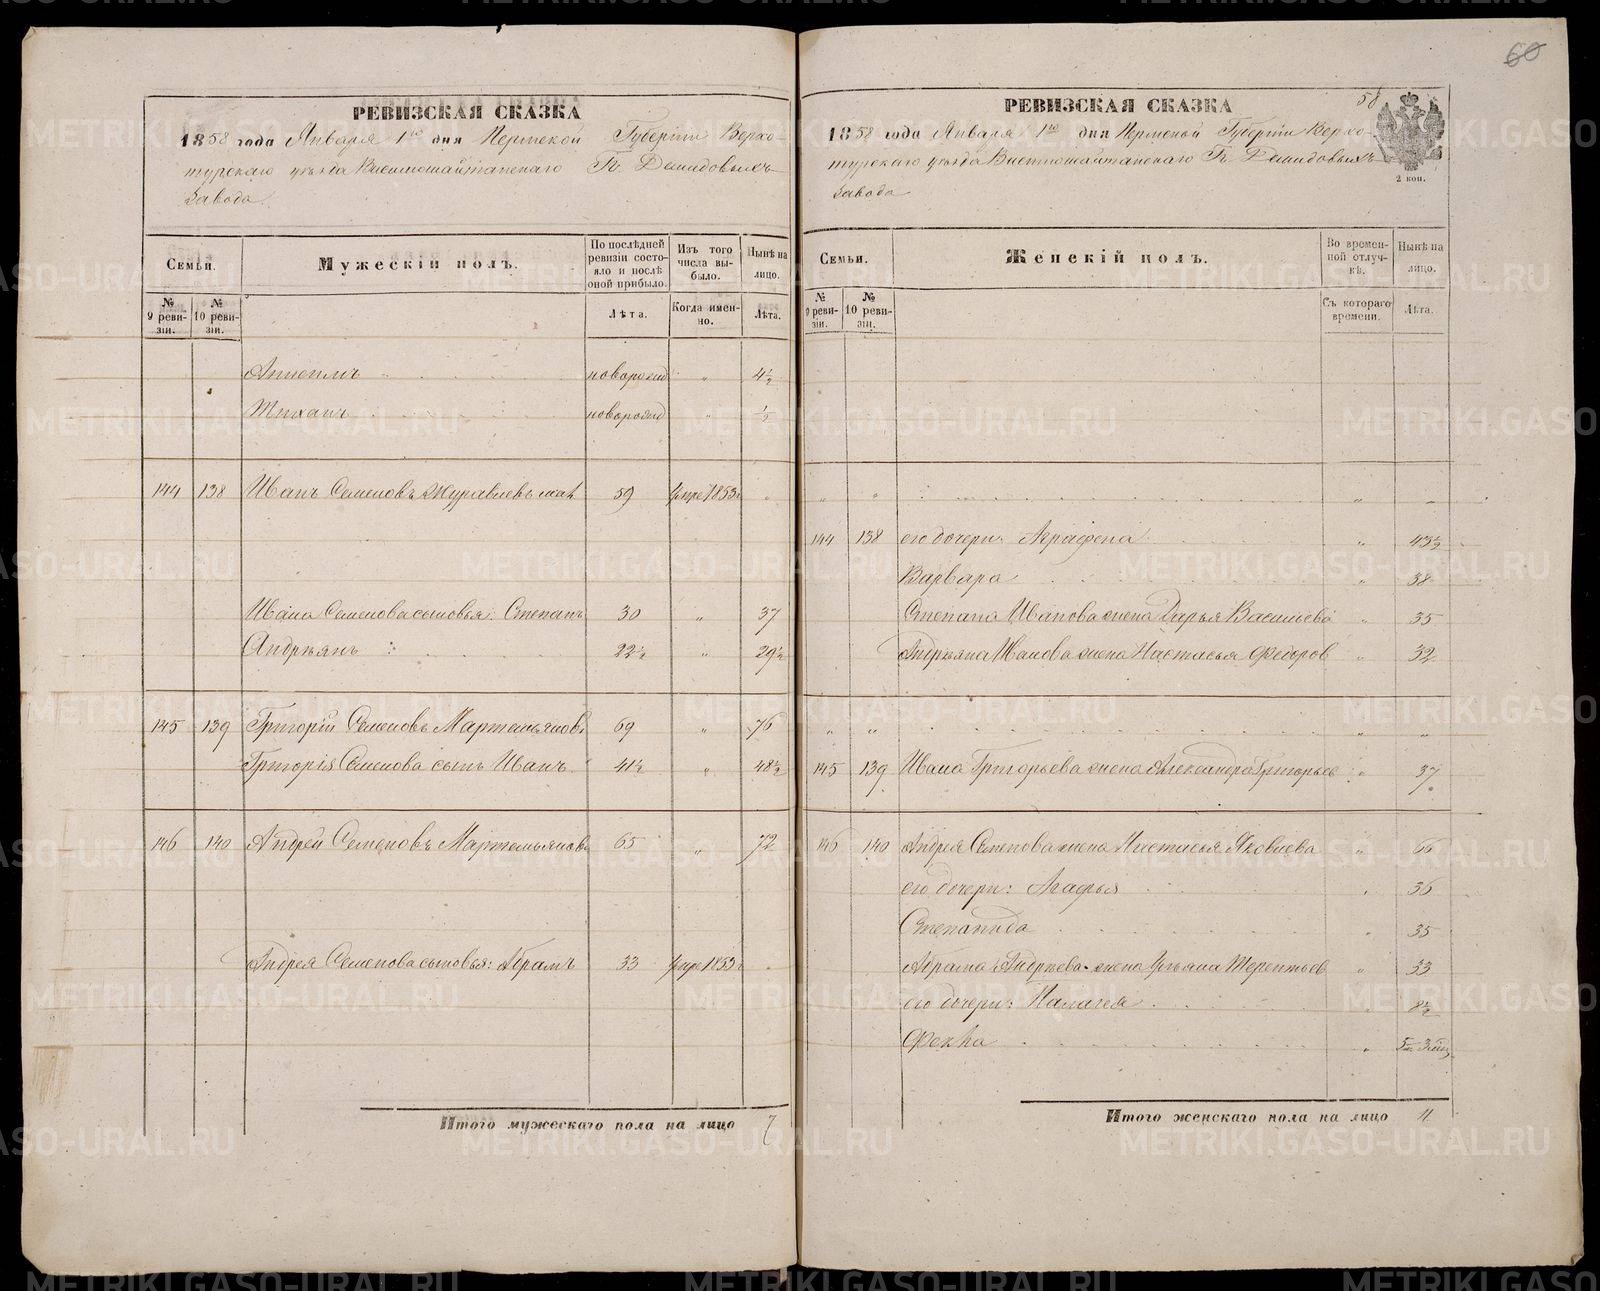 РЕВИЗСКАЯ СКАЗКА
1858 года Января 1го дня Пермской Губернiи Верхо-
турскаго уѣзда Висимошайтанскаго Гг. Демидовыхъ
Завода
Семьи.
Мужескій полъ.
По послѣдней ревизіи состо-яло и послѣ оной прибыло.
Изъ того числа вы-было.
Нынѣ на лицо.
№ 9 реви-зіи.
№ 10 реви-зіи.
Лѣта.
Когда имен-но.
Лѣта.
новорожд " 4½
новорожд " ½
144 138 Иванъ Семеновъ 59 умре 1853г "
Ивана Семенова сыновья: Степанъ 30 " 37
Андреянъ 22½ " 29½
145 139 Григорій Семеновъ Мартемьяновъ 69 " 76
Григорія Семенова сынъ Иванъ 41½ " 48½
146 140 Андрей Семеновъ Мартемьяновъ 65 " 72
Андрея Семенова сыновья: Абрамъ 33 умре 1853г "
Итого мужескаго пола на лицо 7
60
58
РЕВИЗСКАЯ СКАЗКА
1858 года Января 1го дня Пермской Губерніи Верхо-
турскаго уѣзда Висимошайтанскаго Гг. Демидовыхъ
Завода
2 коп.
Семьи.
Женскій полъ.
Во времен-ной отлуч-кѣ.
Нынѣ на лицо.
№ 9 реви-зіи.
№ 10 реви-зіи.
Съ котораго времени.
Лѣта.
144 138 его дочери: Аграфена " 43½
Варвара " 38
Степана Иванова жена Дарья Васильева " 35
Андреяна Иванова жена Настасья Федоров " 32
145 139 Ивана Григорьева жена Александра Григорьев " 37
146 140 Андрея Семенова жена Настасья Яковлева " 66
его дочери: Агафья " 36
Степанида " 35
Абрама Андреева жена Ульяна Терентьев " 33
его дочери: Палагея " 8½
Фекла "
Итого женскаго пола на лицо 11
METRIKI.GASO-URAL.RU